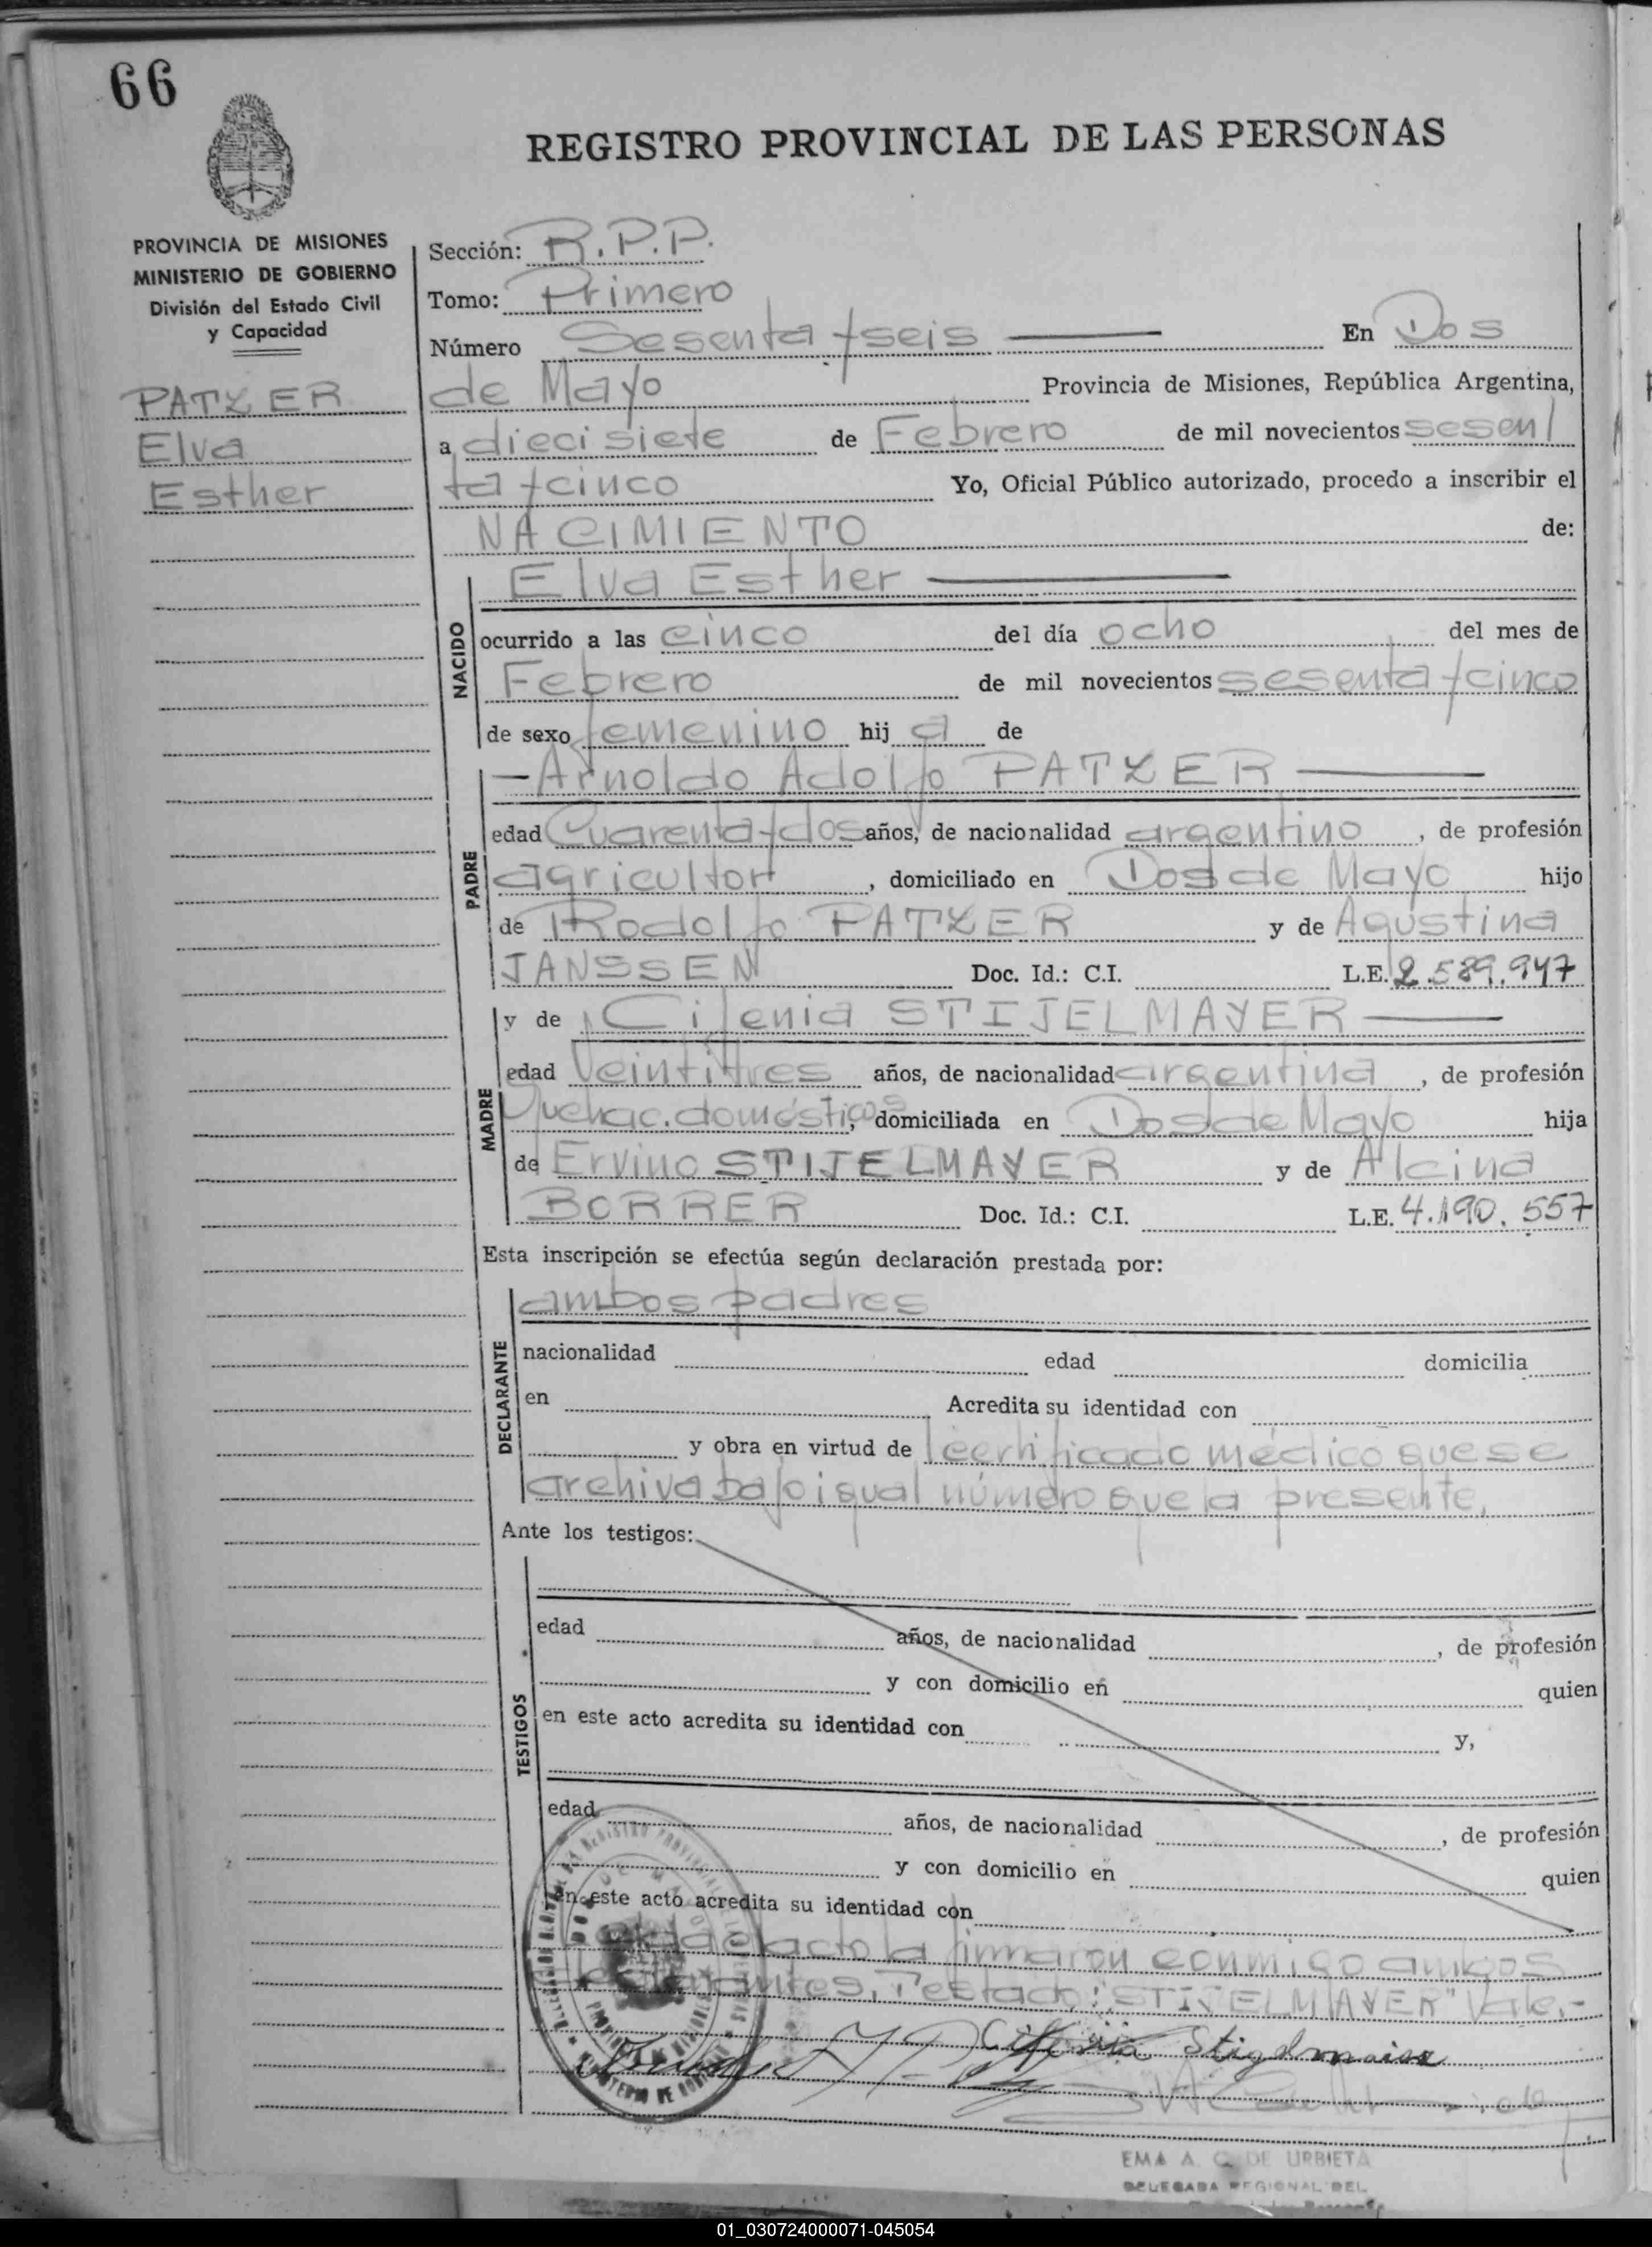 66
REGISTRO PROVINCIAL DE LAS PERSONAS
PROVINCIA DE MISIONES
MINISTERIO DE GOBIERNO
División del Estado Civil
y Capacidad
PATZER
Elva
Esther
Sección: R.P.P.
Tomo: Primero
Número Sesenta y seis En Dos
de Mayo Provincia de Misiones, República Argentina,
a diecisiete de Febrero de mil novecientos sesen
ta y cinco Yo, Oficial Público autorizado, procedo a inscribir el
NACIMIENTO de:
NACIDO
Elva Esther
ocurrido a las cinco del día ocho del mes de
Febrero de mil novecientos sesenta y cinco
de sexo femenino hija de
PADRE
Arnoldo Adolfo PATZER
edad Cuarenta y dos años, de nacionalidad argentino, de profesión
agricultor, domiciliado en Dos de Mayo hijo
de Rodolfo PATZER y de Agustina
JANSSEN Doc. Id.: C.I. L.E. 2.589.947
MADRE
y de Cifenia STIJELMAYER
edad Veintitres años, de nacionalidad argentina, de profesión
Quehac. domésticos, domiciliada en Dos de Mayo hija
de Ervino STIJELMAYER y de Alcina
BORRER Doc. Id.: C.I. L.E. 4.190.557
Esta inscripción se efectúa según declaración prestada por:
DECLARANTE
ambos padres
nacionalidad edad domicilia
en Acredita su identidad con
y obra en virtud de certificado médico que se
archiva bajo igual número que la presente.
Ante los testigos:
TESTIGOS
edad años, de nacionalidad , de profesión
y con domicilio en quien
en este acto acredita su identidad con y,
edad años, de nacionalidad , de profesión
y con domicilio en quien
en este acto acredita su identidad con
acto la firmaron conmigo ambos
declarantes. Testado: "STIJELMAYER" Vale.-
EMA A. C. DE URBIETA
DELEGADA REGIONAL DEL
01_030724000071-045054